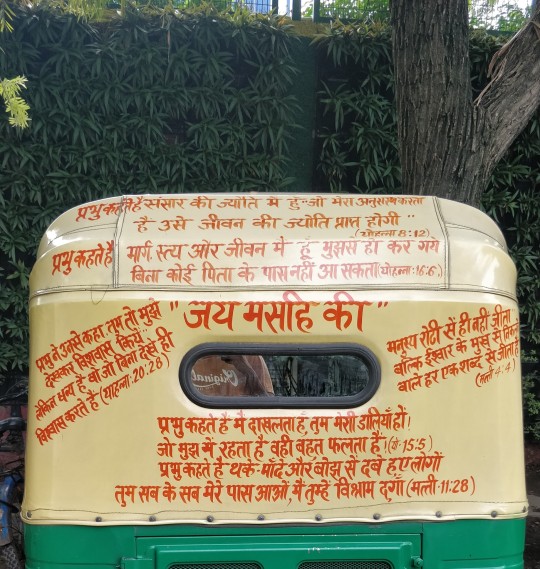 प्रभु कहते है संसार की ज्योति मै हुँ "जो मेरा अनुसरण करता
है उसे जीवन की ज्योति प्राप्त होगी"
(योहन्ना 8:12)
प्रभु कहते है मार्ग, स्त्य और जीवन मैं हूँ मुझसे हो कर गये
बिना कोई पिता के पास नहीं आ सकता (योहन्ना:16:6)
"जय मसीह की"
प्रभु ने उनसे कहा, तुम तो मुझे
देखकर विश्वास किये
लेकिन धन्य है वो जो बिना देखे ही
विश्वास करते है (योहन्ना:20:28)
मनुस्य रोटी सें ही नहीं जीता
बल्कि ईश्वार के मुख से निकलने
वाले हर एक शब्द से जीता है
(मत्ती 4:4)
Original
प्रभु कहते है मैं दाखलता हूँ, तुम मेरी डालियाँ हों!
जो मुझ में रहता है वही बहुत फलता है! (यो 15:5)
प्रभु कहते है थके-माँदे और बोझ सें दबे हुए लोगों
तुम सब के सब मेरे पास आओं, मैं तुम्हें विश्राम दूगाँ (मत्ती-11:28)